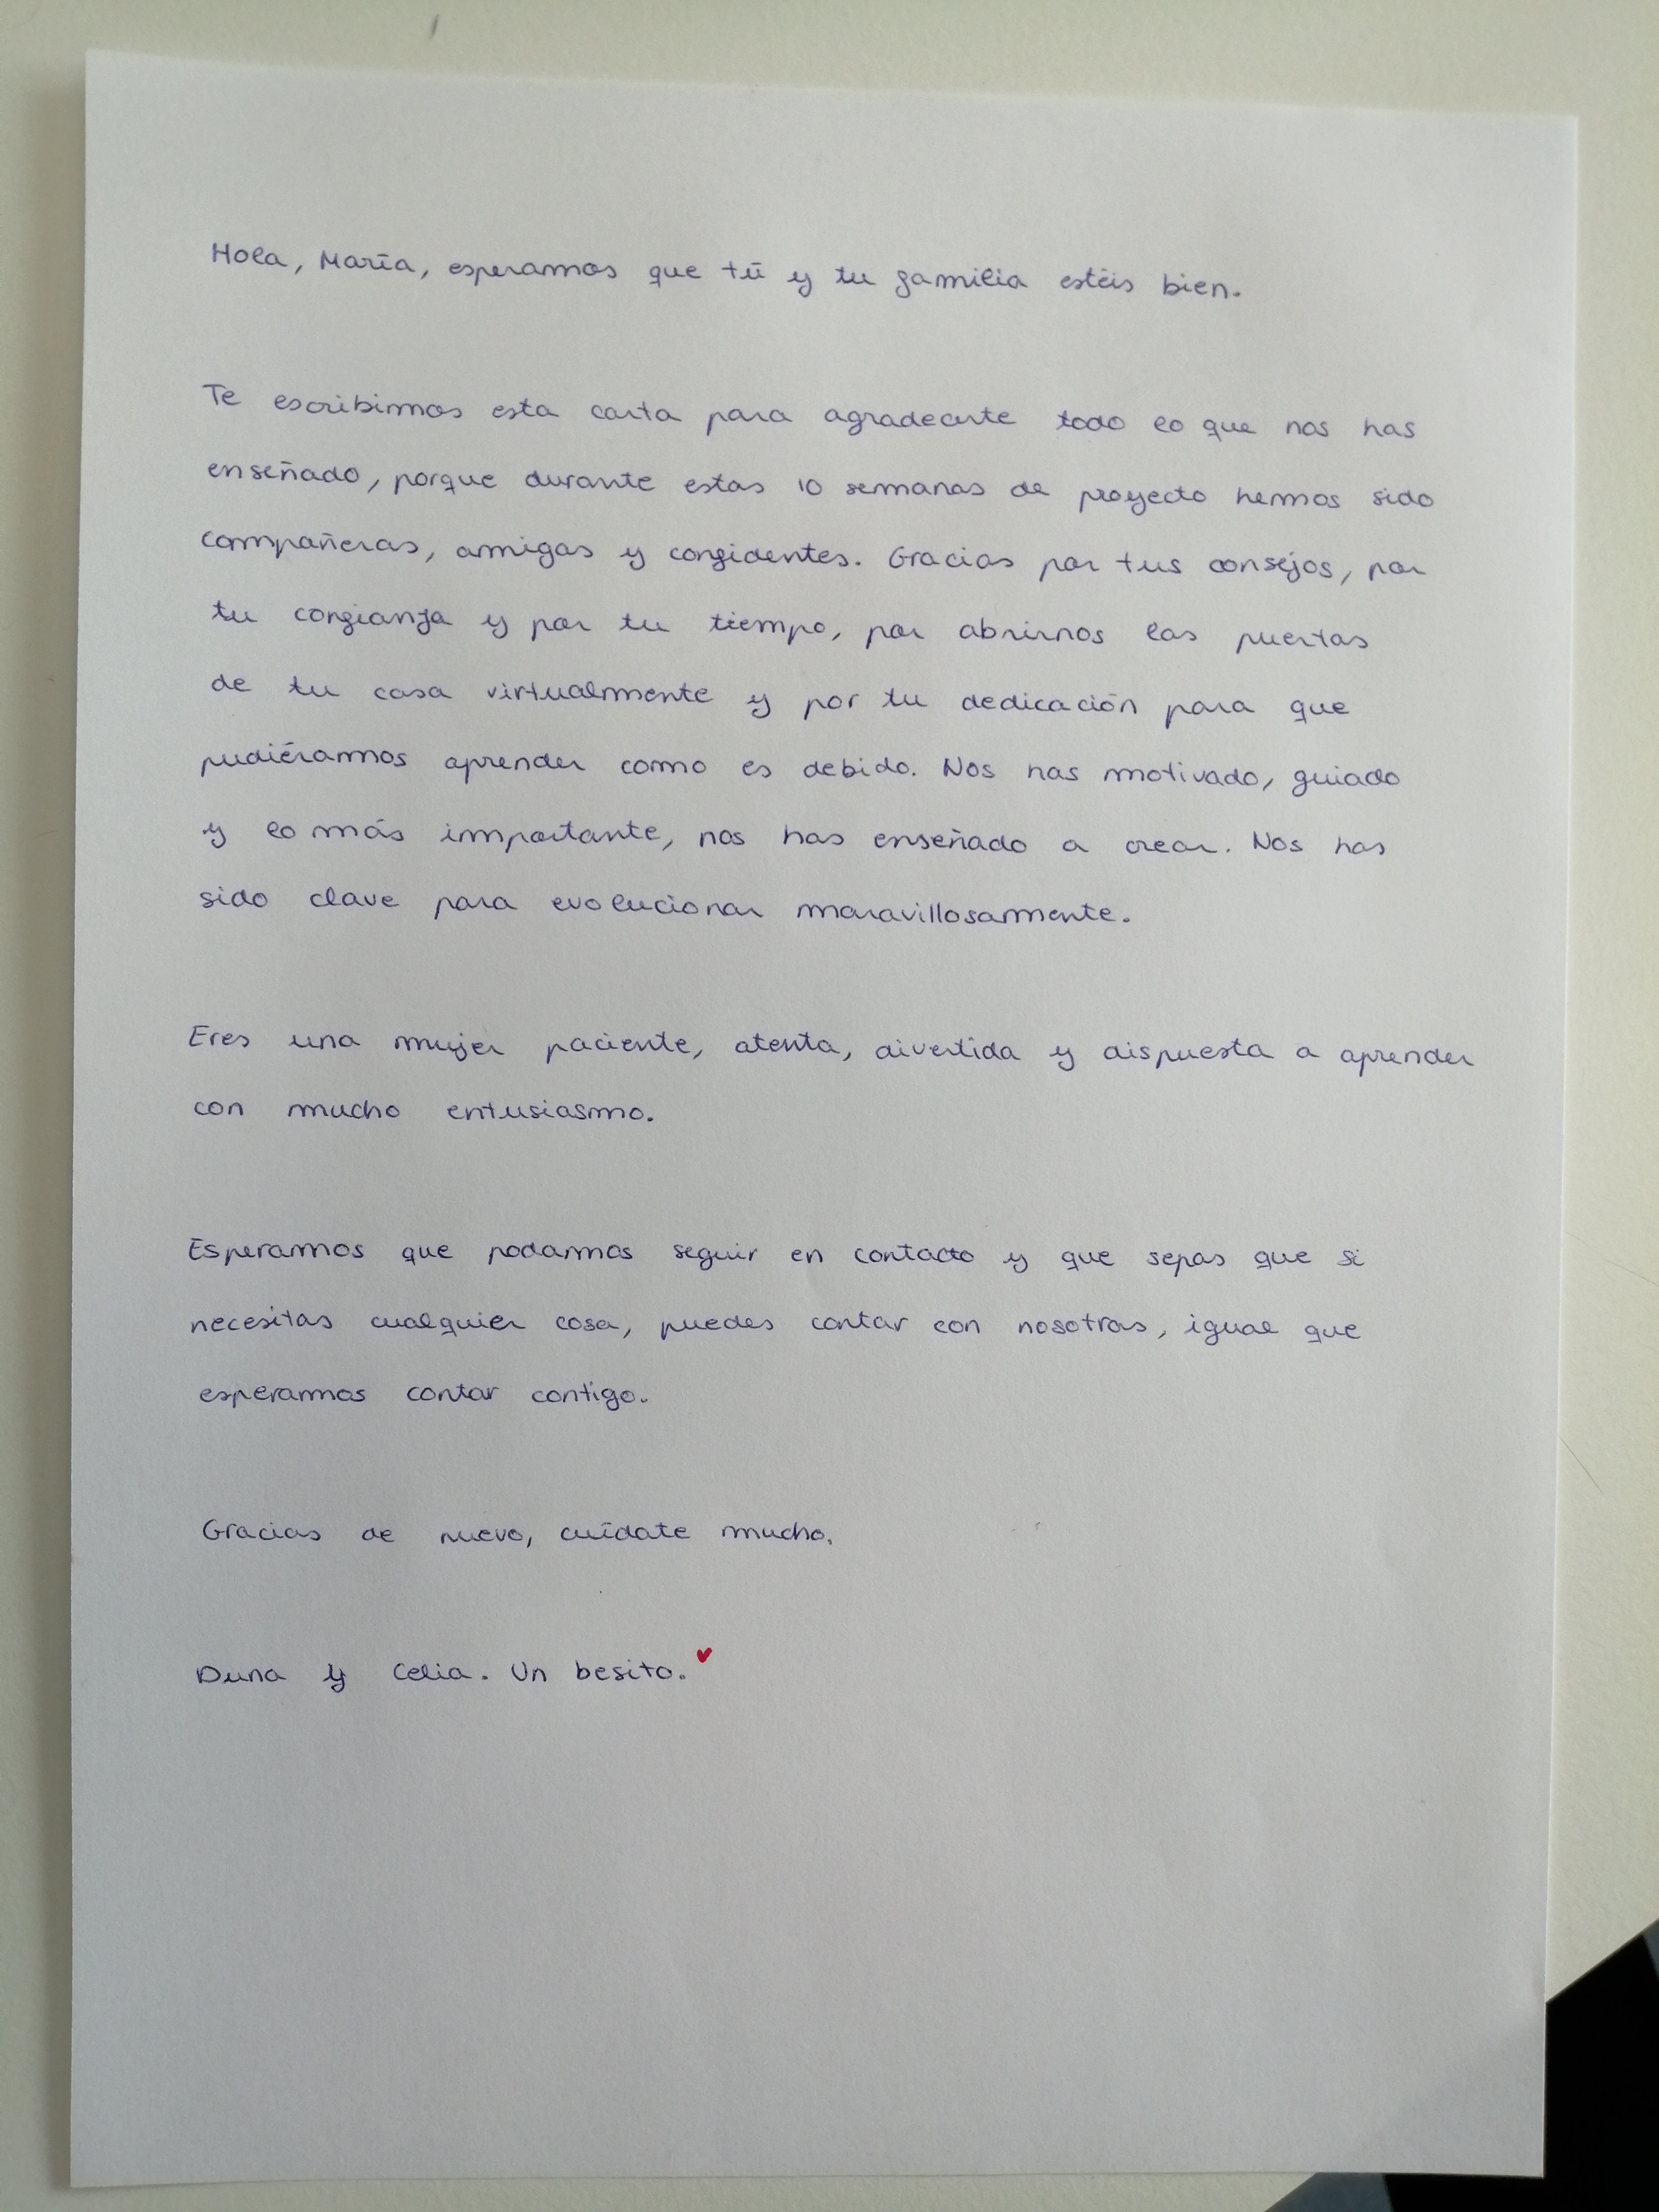 Hola, María, esperamos que tú y tu familia estéis bien.
Te escribimos esta carta para agradecerte todo lo que nos has
enseñado, porque durante estas 10 semanas de proyecto hemos sido
compañeras, amigas y confidentes. Gracias por tus consejos, por
tu confianza y por tu tiempo, por abrirnos las puertas
de tu casa virtualmente y por tu dedicación para que
pudiéramos aprender como es debido. Nos has motivado, guiado
y lo más importante, nos has enseñado a crear. Nos has
sido clave para evolucionar maravillosamente.
Eres una mujer paciente, atenta, divertida y dispuesta a aprender
con mucho entusiasmo.
Esperamos que podamos seguir en contacto y que sepas que si
necesitas cualquier cosa, puedes contar con nosotras, igual que
esperamos contar contigo.
Gracias de nuevo, cuídate mucho.
Duna y Celia. Un besito.